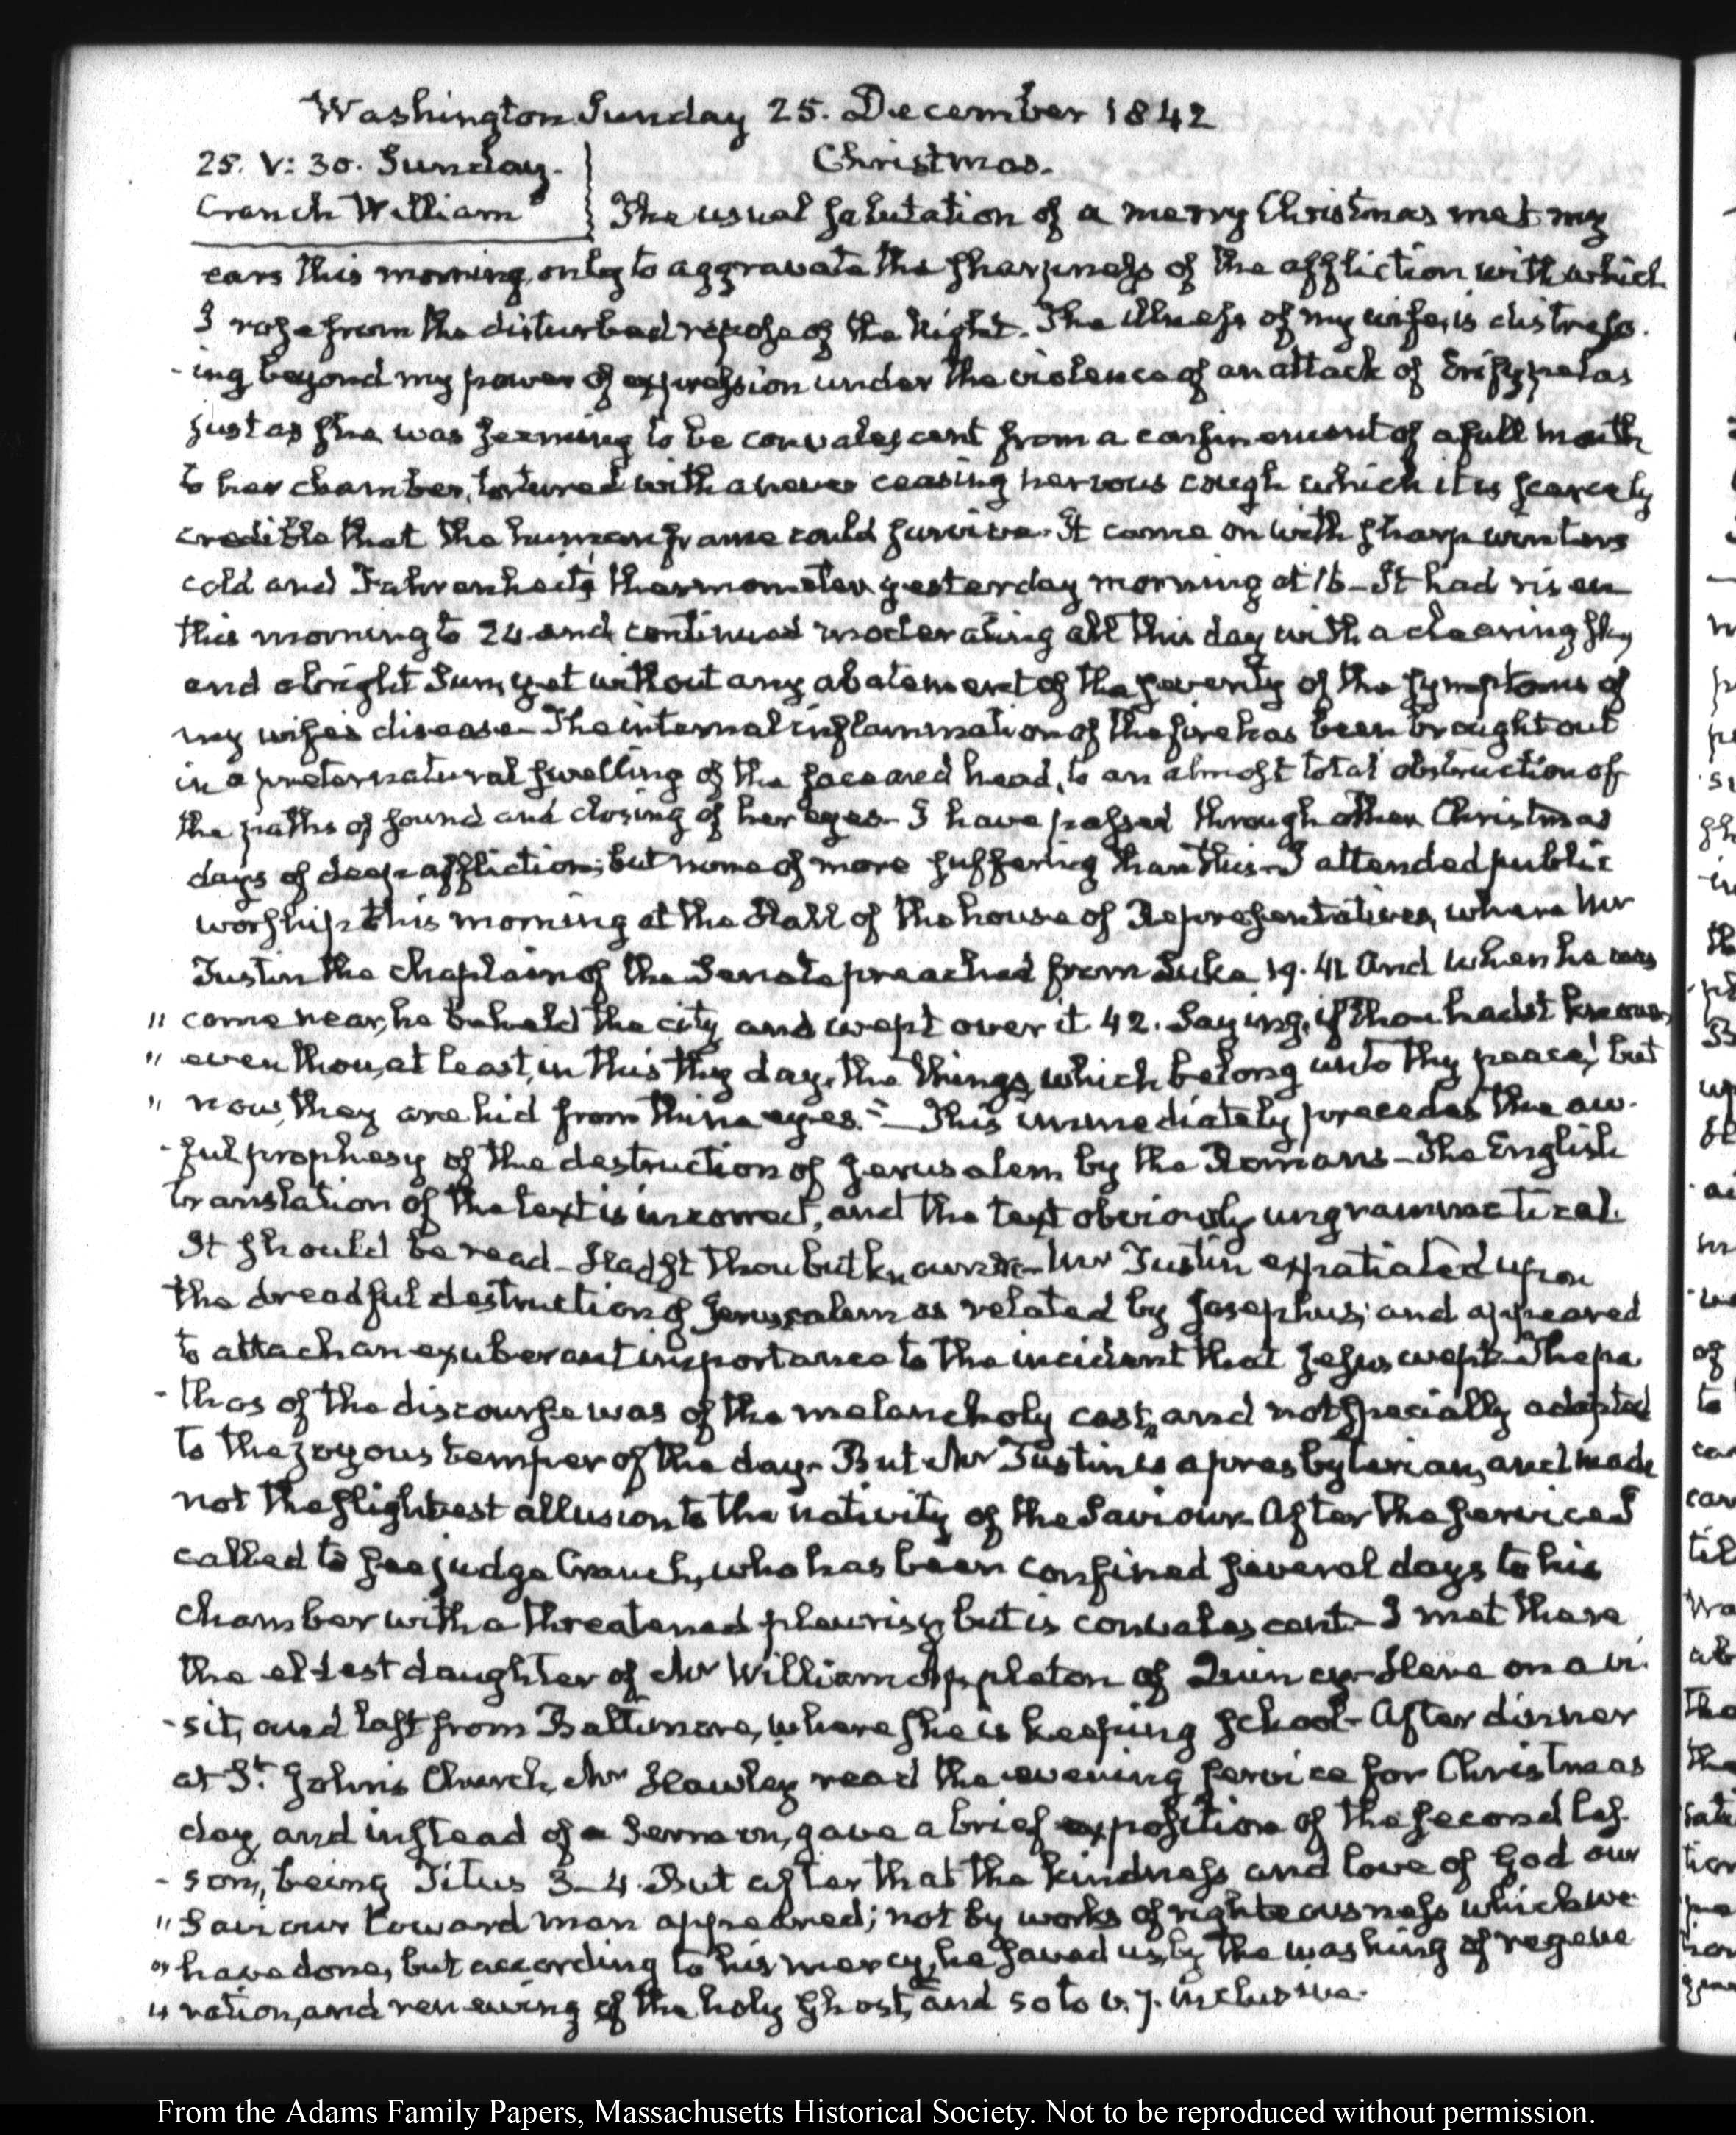 Washington Sunday 25. December 1842
25. V: 30. Sunday.
Cranch William
Christmas.
The usual salutation of a merry Christmas met my
ears this morning, only to aggravate the sharpness of the affliction with which
I rose from the disturbed repose of the Night. The illness of my wife, is distress-
-ing beyond my power of expression under the violence of an attack of Erisypelas
just as she was seeming to be convalescent from a confinement of a full month
to her chamber, tortured with a never ceasing nervous cough which it is scarcely
credible that the human frame could survive. It came on with sharp winters
cold and Fahrenheit's thermometer yesterday morning at 16 - It had risen
this morning to 24 and continued moderating all this day with a clearing sky
and a bright Sun, yet without any abatement of the severity of the symptoms of
my wife's disease - The internal inflammation of the fire has been brought out
in a preternatural swelling of the face and head, to an almost total obstruction of
the paths of sound and closing of her eyes - I have passed through other Christmas
days of deep affliction; but none of more suffering than this - I attended public
worship this morning at the Hall of the house of Representatives, where Mr
Tustin the chaplain of the Senate preached from Luke 19. 41 And when he was
" come near, he beheld the city and wept over it. 42. Saying, if thou hadst known,
" even thou, at least, in this thy day, the things, which belong unto thy peace! but
" now, they are hid from thine eyes." - This immediately precedes the aw-
-ful prophesy of the destruction of Jerusalem by the Romans - The English
translation of the text is incorrect, and the text obviously ungrammatical.
It should be read - Hadst thou but known &c - Mr Tustin expatiated upon
the dreadful destruction of Jerusalem as related by Josephus; and appeared
to attach an exuberant importance to the incident that Jesus wept - The pa-
-thos of the discourse was of the melancholy cast, and not specially adapted
to the joyous temper of the day - But Mr Tustin is a presbyterian, and made
not the slightest allusion to the nativity of the Saviour. After the service I
called to see judge Cranch, who has been confined several days to his
chamber with a threatened pleurisy, but is convalescent - I met there
the eldest daughter of Mr William Appleton of Quincy - Here on a vi-
-sit, and last from Baltimore, where she is keeping school - After dinner
at St. John's Church, Mr Hawley read the evening service for Christmas
day, and instead of a Sermon, gave a brief exposition of the second les-
-son, being Titus 3-4. But after that the kindness and love of God our
" Saviour toward man appeared; not by works of righteousness which we
" have done, but according to his mercy, he saved us, by the washing of regene-
" ration, and renewing of the holy Ghost, and so to v. 7. inclusive.
From the Adams Family Papers, Massachusetts Historical Society. Not to be reproduced without permission.